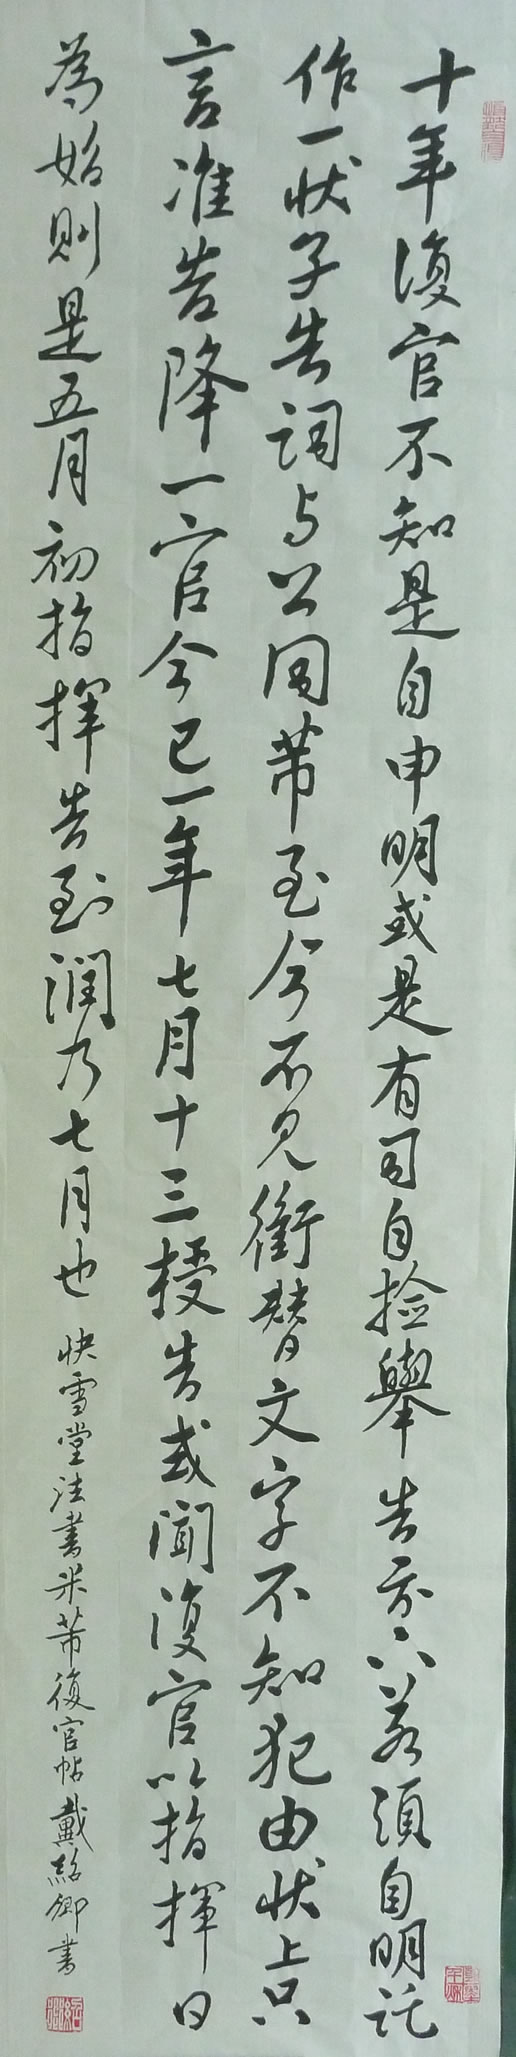 十年復官不知是自申明或是有司自撿舉告示下若須自明託
作一状子告詞与公同帯至今不見衝替文字不知犯由状上只
言准告降一官今已一年七月十三授告或聞復官以指揮日
為始則是五月初指揮告到潤乃七月也 快雪堂法書米芾復官帖 戴紹卿書